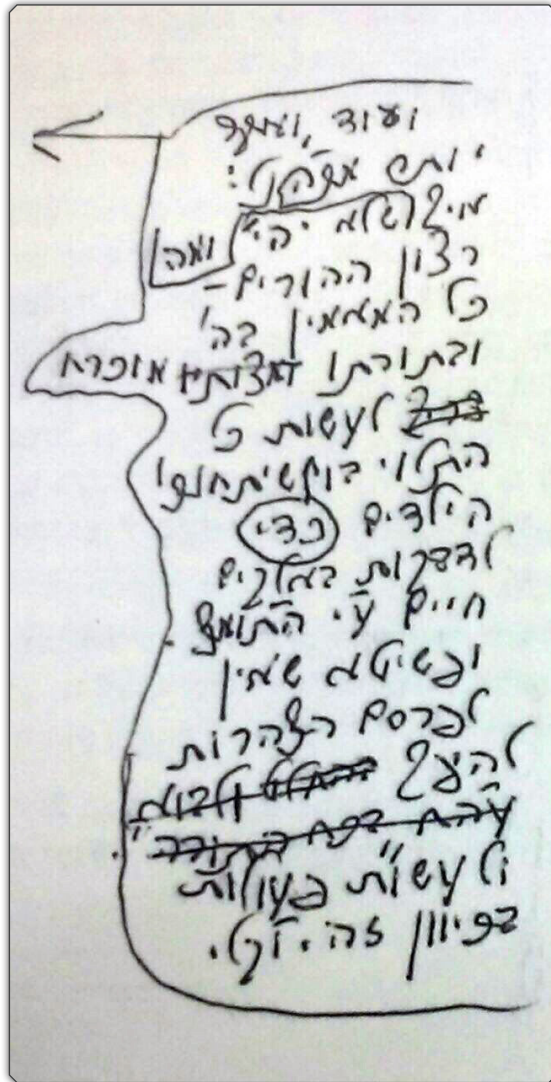 ועוד, ועיקר
יותר מכהנ"ל:
איך שלא יהי' ומה
רצון ההורים –
כל המאמין בה'
ובתורתו ומצותיו מוכרח
לעשות כל
התלוי בו שיתחנכו
הילדים כדי
לדבקות באלקים
חיים ע"י התומ"צ.
ופשיטא שאין
לפרסם הצהרות
להיפך
ולעשות פעולות
בכיוון זה. וק"ל.